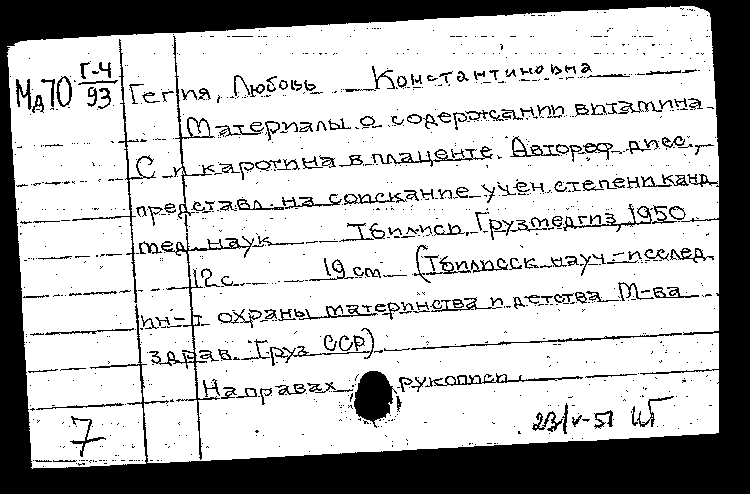 Мд70 Г-4/93 Гегия, Любовь Константиновна
Материалы о содержании витамина
С и каротина в плаценте. Автореф дисс.,
представл. на соискание учён. степени канд
мед. наук Тбилиси, Грузмедгиз, 1950.
12 с. 19 см (Тбилисск. науч.-исслед.
ин-т охраны материнства и детства М-ва
здрав. Груз ССР).
На правах рукописи.
7 23/V-51 ШГ